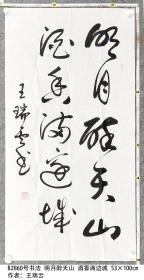 明月醉天山
酒香满边城
王瑞云书
B2860号书法 明月醉天山 酒香满边城 53×100cm
作者：王瑞云